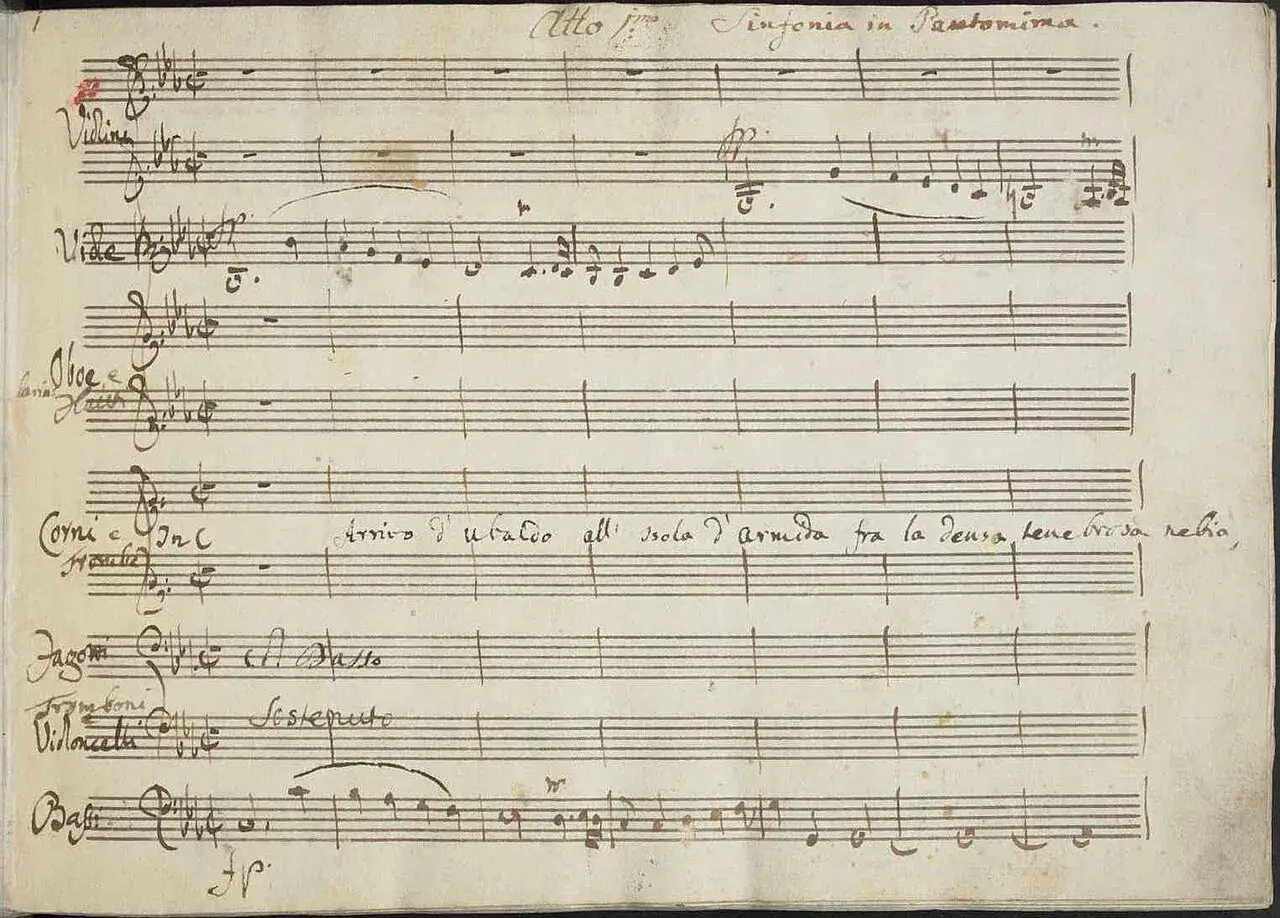 1
Atto 1mo Sinfonia in Pantomima.
Violini
fp.
Viole
fp.
Oboe e
Corni e In C
Arrivo d'ubaldo all' isola d'armida fra la densa tenebrosa nebia,
Trombe
Fagotti
Col Basso
Tromboni
Sostenuto
Violoncelli
Bassi
fp.